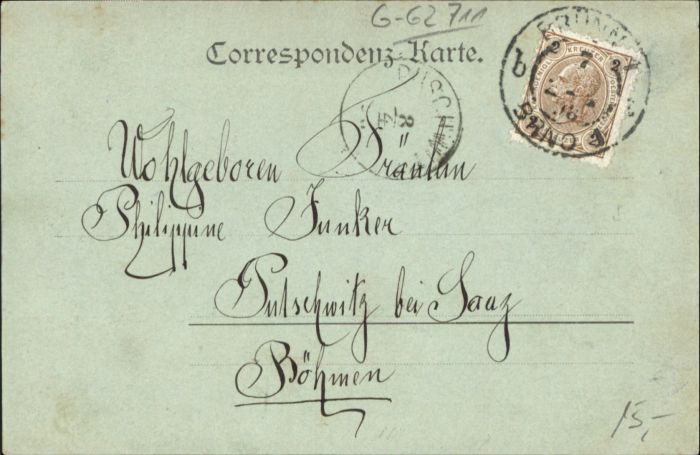 G-62711
Correspondenz-Karte.
BRÜNN
b
2 KREUZER 2
8
4
Wohlgeboren Fräulein
Philippine Junker
Putschwitz bei Saaz
Böhmen
15,-